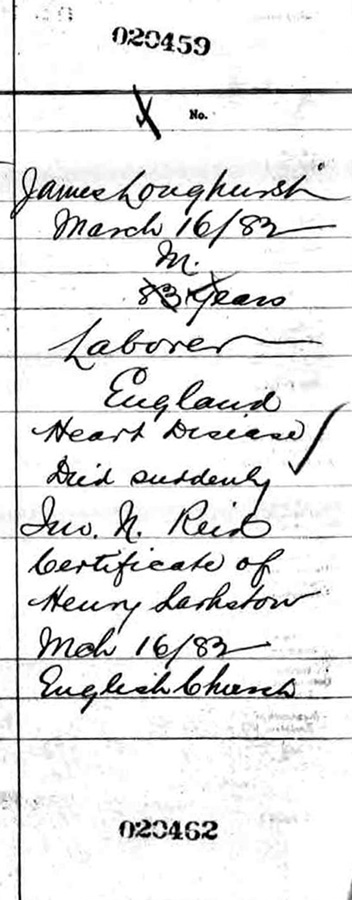 020459
No.
James Longhurst
March 16/82
M.
83 Years
Laborer
England
Heart Disease
Died suddenly
Jno. N. Reid
Certificate of
Henry
Mch 16/82
English Church
020462